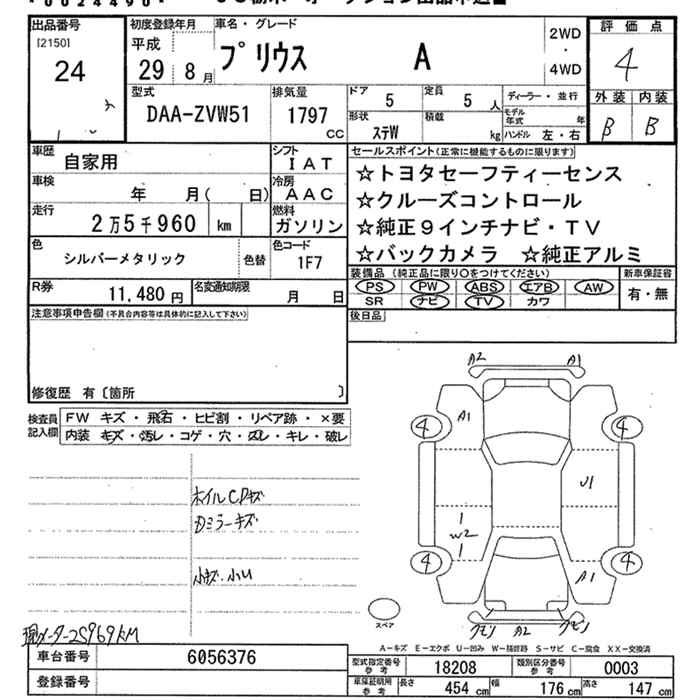 0024490
出品番号
[2150]
24
初度登録年月
平成
29年 8月
車名・グレード
プリウス A
2WD
・
4WD
評価点
4
外装 内装
B B
型式
DAA-ZVW51
排気量
1797
CC
ドア
5
定員
5 人
形状
ステW
積載
kg
ディーラー・並行
モデル年式 年
ハンドル 左・右
車歴
自家用
シフト
IAT
車検
年 月( 日)
冷房
AAC
走行
2万5千960 km
燃料
ガソリン
色
シルバーメタリック
色替
色コード
1F7
R券
11,480円
名変通知期限
月 日
セールスポイント(正常に機能するものに限ります)
☆トヨタセーフティーセンス
☆クルーズコントロール
☆純正9インチナビ・TV
☆バックカメラ ☆純正アルミ
装備品(純正品に限り○をつけてください)
PS PW ABS エアB AW
SR ナビ TV カワ
新車保証省
有・無
後日品
注意事項申告欄(不具合内容等は具体的に記入して下さい)
修復歴 有〔箇所 〕
検査員
記入欄
FW キズ・飛石・ヒビ割・リペア跡・×要
内装 キズ・汚レ・コゲ・穴・スレ・キレ・破レ
ホイルCPキズ
Dミラーキズ
小キズ・小U
現メーター25969KM
A2 A1
4 A1 4
U1
W2
4 A1 4
スペア
クモリ A2 クモリ
A-キズ E-エクボ U-凹み W-補修跡 S-サビ C-腐食 XX-交換済
車台番号
6056376
登録番号
型式指定番号
参考
18208
類別区分番号
参考
0003
車庫証明用
参考
長さ 454 cm
幅 176 cm
高さ 147 cm